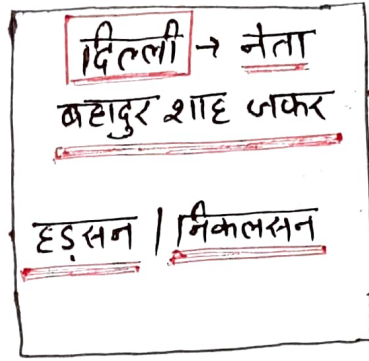 दिल्ली → नेता
बहादुर शाह जफर
हडसन / निकलसन